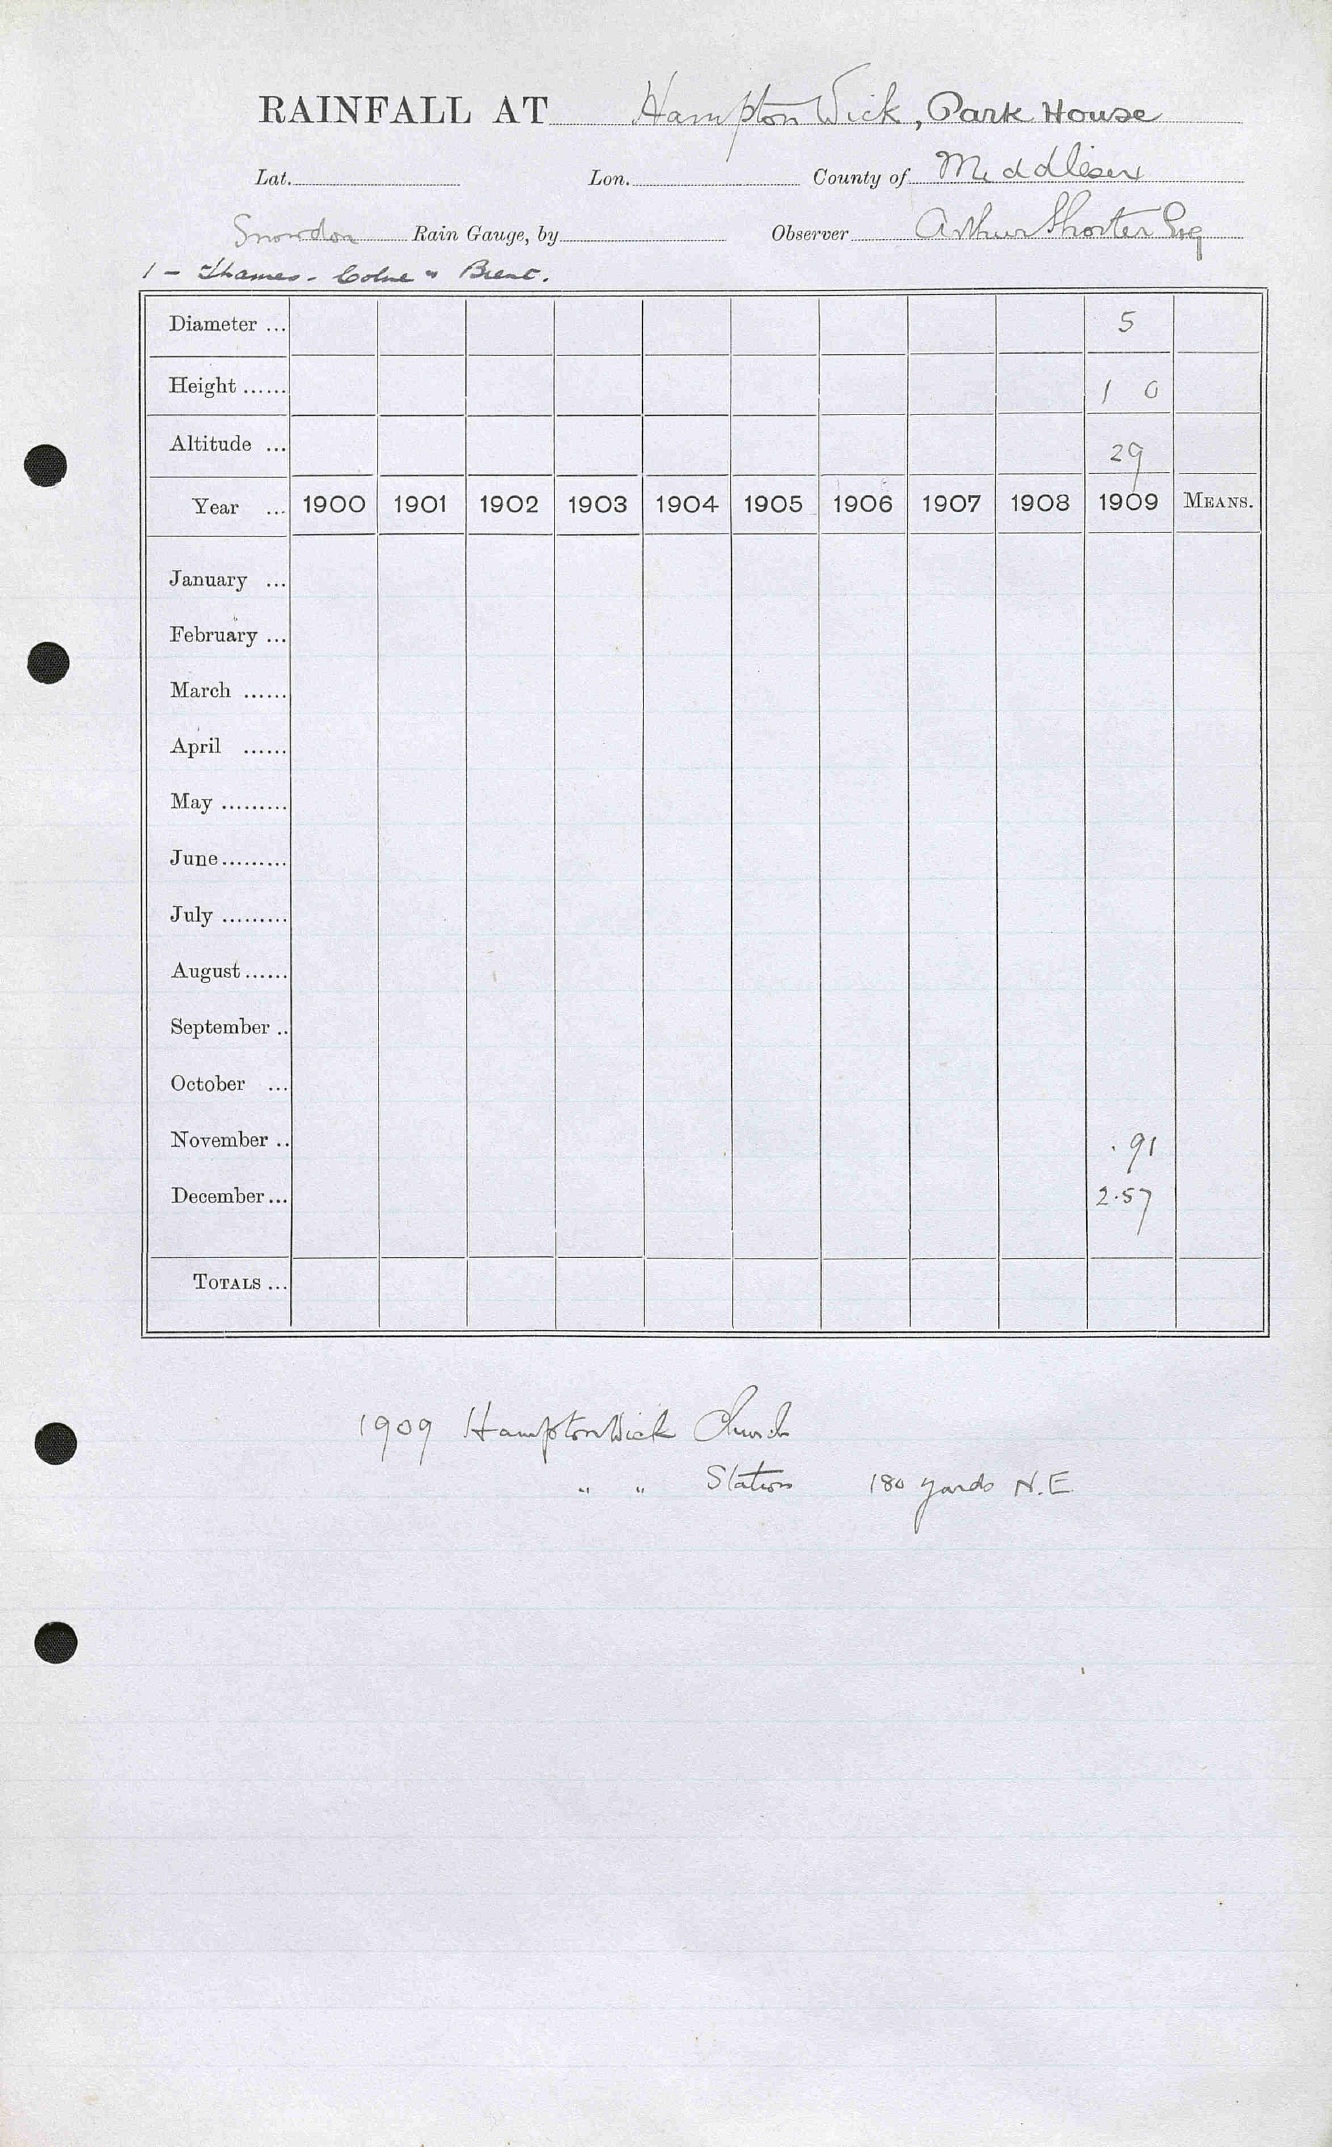 RAINFALL AT Hampton Wick, Park House
Lat. Lon. County of Middlesex
Snowdon Rain Gauge, by Observer Arthur Shorter Esq
1 - Thames - Colne " Brent.
Diameter ... 5
Height ...... 1 0
Altitude ... 29
Year ... 1900 1901 1902 1903 1904 1905 1906 1907 1908 1909 MEANS.
January ...
February ...
March ......
April ......
May .........
June.........
July .........
August......
September ..
October ...
November .. .91
December... 2.57
TOTALS ...
1909 Hampton Wick Church
" " Station 180 yards N.E.